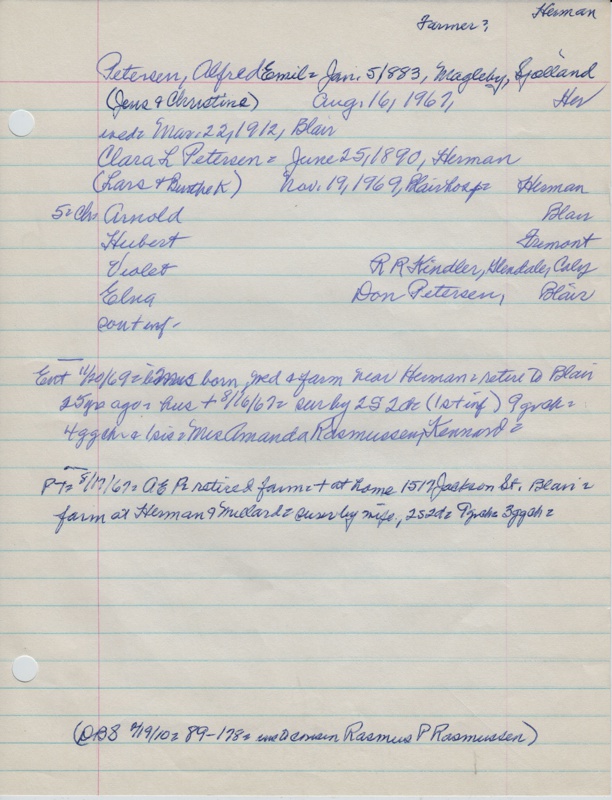 Farmer? Herman
Petersen, Alfred Emil = Jan. 5/1883, Magleby, Sjælland
(Jens & Christine) Aug. 16, 1967, Her
med = Mar. 22, 1912, Blair
Clara L Petersen = June 25, 1890, Herman
(Lars & Birthe K) Nov. 19, 1969, Blair hosp = Herman
5 = Ch = Arnold Blair
Hubert Fremont
Violet R R Kindler, Glendale, Calif
Elna Don Petersen, Blair
son + inf -
Ent 11/20/69 = born, med & farm near Herman = retire to Blair
25 yrs ago = hus + 8/16/67 = sur by 2S 2d = (1 s + inf) 9 grch =
4 ggch & 1 sis = Mrs Amanda Rasmussen, Kennard =
PT = 8/17/67 = A E P = retired farm = + at home 1517 Jackson St. Blair =
farm at Herman & = surv by wife, 2S 2d = 9 grch = 3 ggch =
(DBS 4/19/10 = 89-178 = cousin Rasmus P Rasmussen)